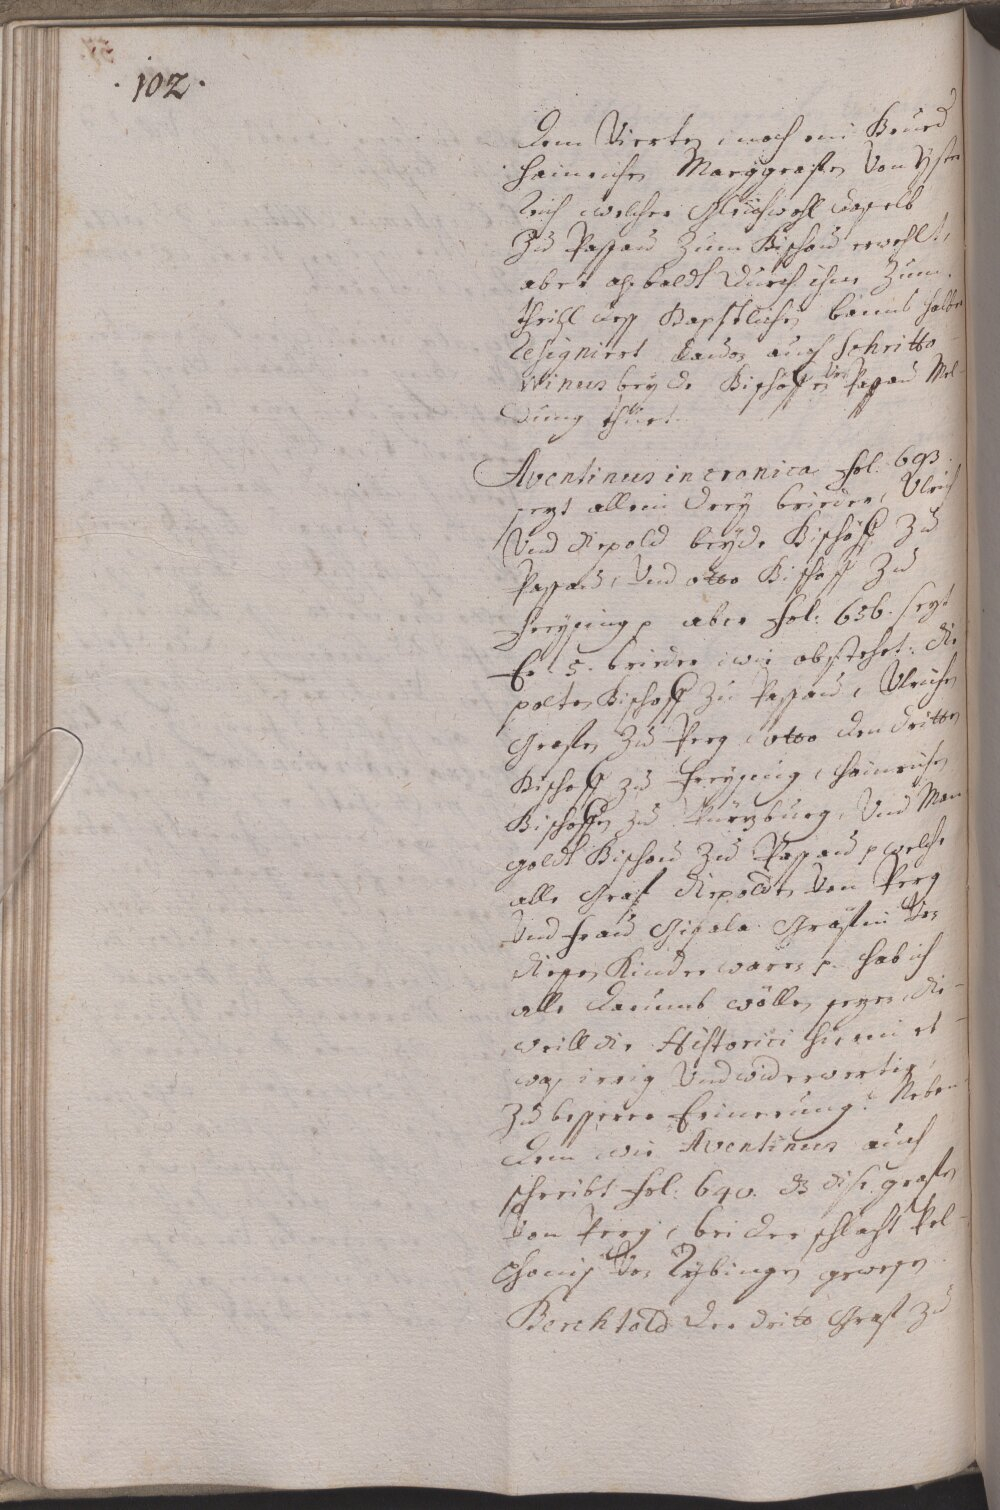 ·102·
dem Vierten, noch ein Brued
Hainrichen Marggrafen Von Ysster
reich welcher Gleichwohl daselb
Zu Passau Zum Bischoue erwehlt,
aber alßbaldt durch ihne Zum
theihl deß Bapstlichen Banns halber
resigniert dauon auch Schritto
Winus bey de Bischoffen Von Passau Mel
dung thuet.
Aventinus in cronica fol: 693.
sezt allein drey brieder, Ulrich
Vnd diepold beyde Bischöff Zu
Passau, Vnd otto Bischoff Zu
Freysing p aber fol: 656. sezt
Er 5. brieder wie obstehet: die
polten Bischoff Zu Passau, Ulrichen
Grafen Zu Perg, otto den dritten
Bischoff Zu Freysing, Hainrichen
Bischoffen Zu Würzburg, Vnd Man
goldt Bischoue Zu Passau p welche
alle Graf diepoldts Von Perg
Vnd Frau Gisala Gräfin Von
diessen Kinder waren p. hab ich
alle darumb wöllen sezen, die-
weill die Historici hierin et-
waß irrig Vnd widerwertig,
Zu besserer Erinerung. Neben
dem wie Aventinus auch
schreibt fol: 640. dz dise grafen
Von Perg, bei der schlacht Pel-
phonis Von Tybingen gewesen.
Berchtold der drite Graf Zu